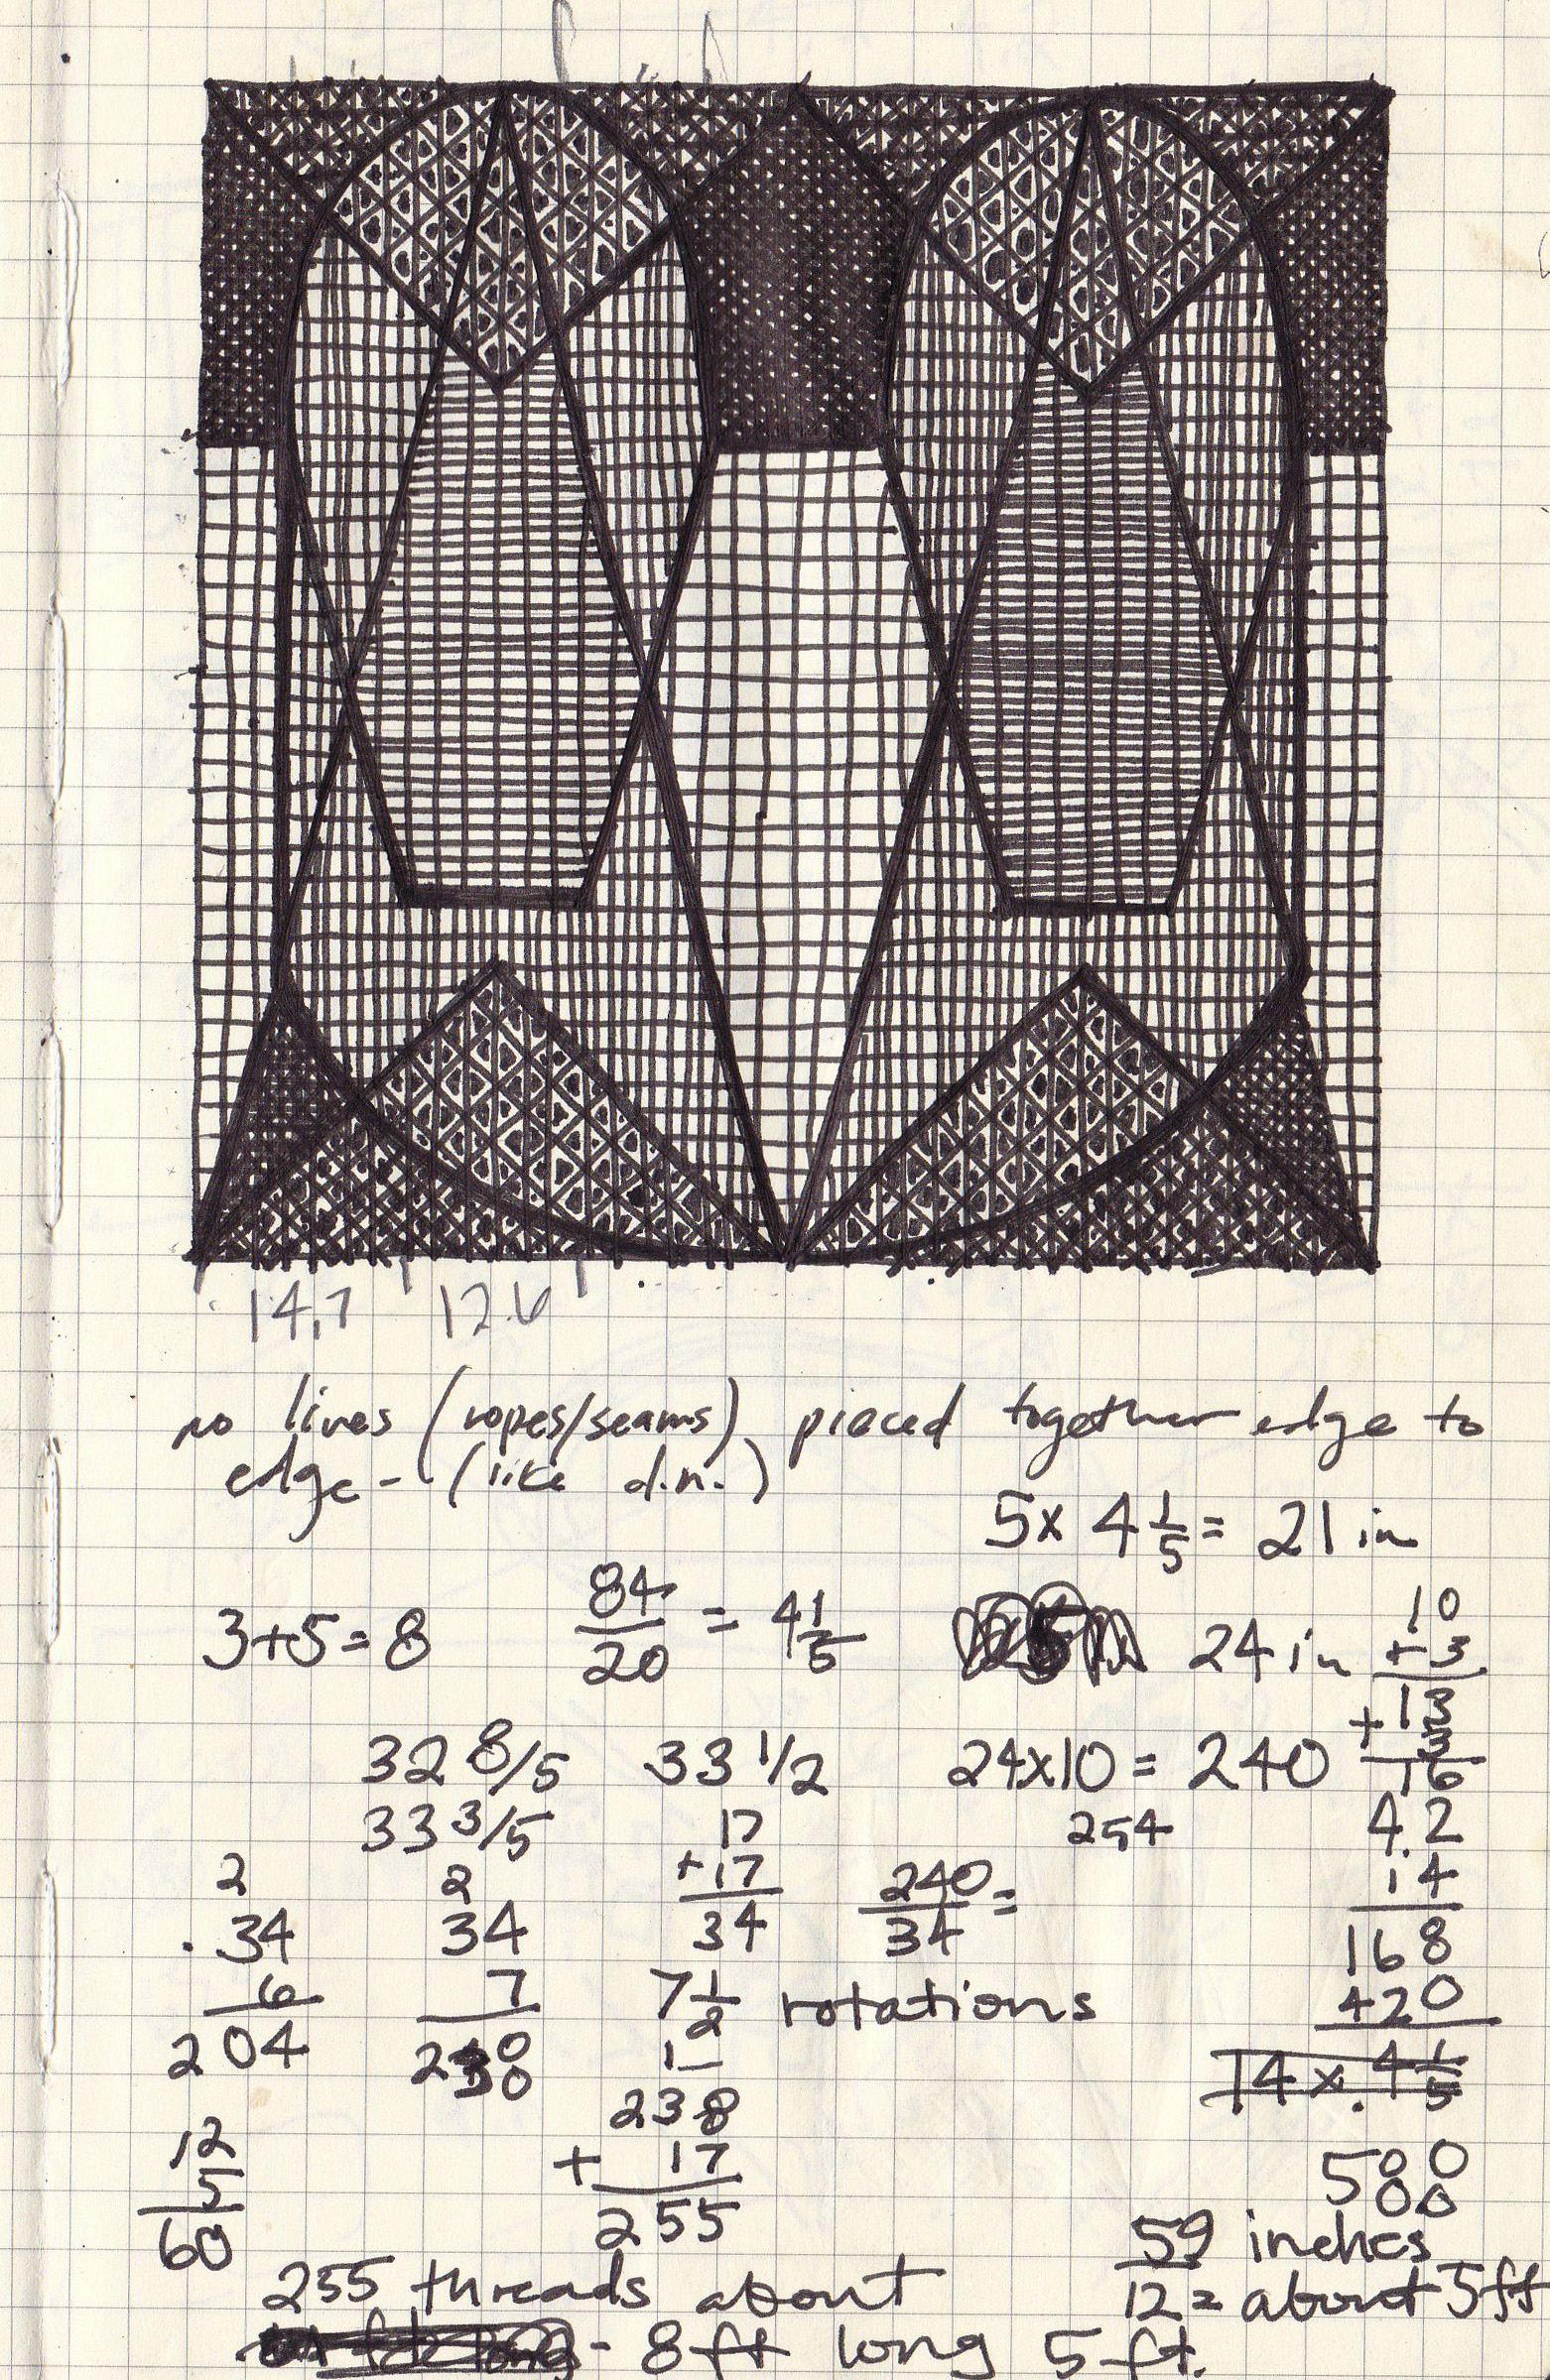 14.7 12.6
no lines (ropes/seams), pieced together edge to
edge - (like d.n.)
5 x 4 1/5 = 21 in
3+5=8 84/20 = 4 1/5 24 in
10
+3
13
+3
16
32 8/5 33 1/2 24x10 = 240
33 3/5 254
17
+17
34
240/34 =
4.2
14
168
420
14 x 4 1/5
2
34
6
204
2
34
7
7 1/2 rotations
1
238
+ 17
255
12
5
60
59 inches
12 = about 5ft
255 threads about
- 8ft long 5 ft.